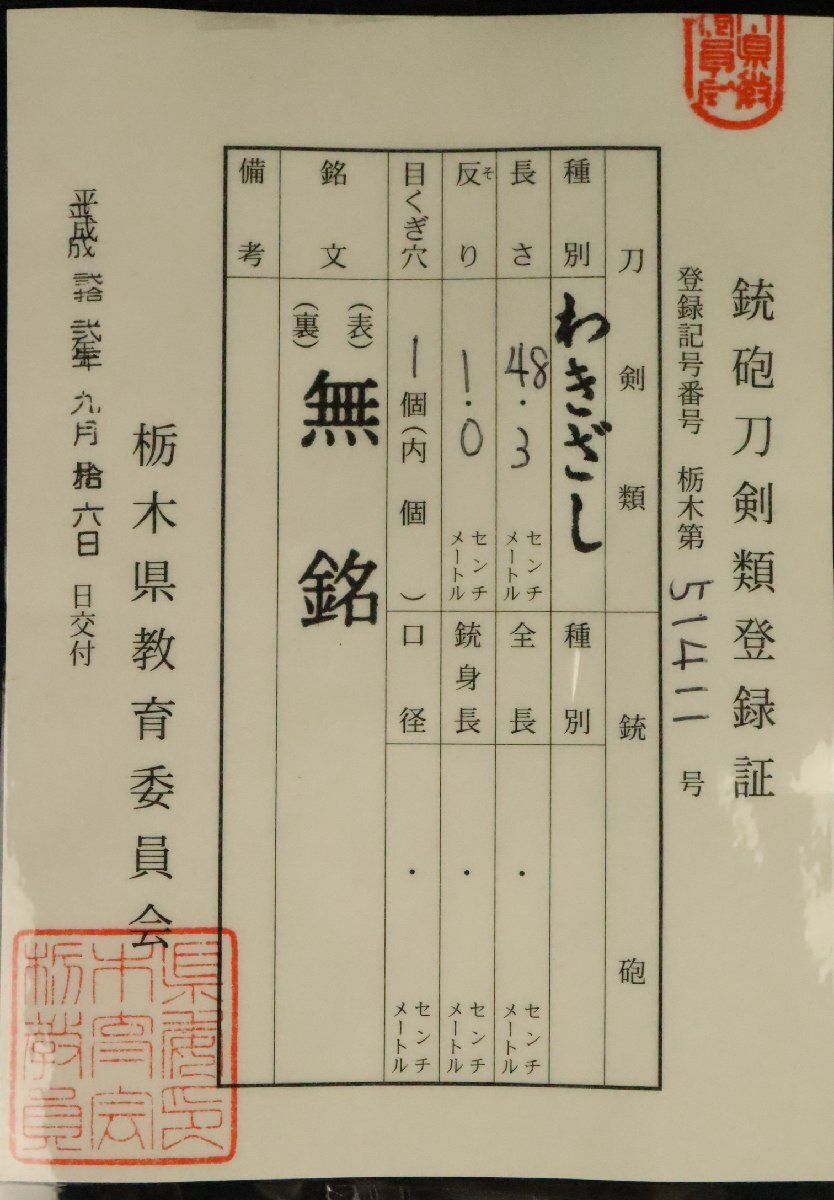 銃砲刀剣類登録証
登録記号番号 栃木第51411号
刀剣類
種別 わきざし
長さ 48.3 センチメートル
反り 1.0 センチメートル
そ
目くぎ穴 1個(内 個)
銘文 (表) (裏) 無銘
備考
銃砲
種別
全長 ・ センチメートル
銃身長 ・ センチメートル
口径 ・ センチメートル
平成 九月拾六日 日交付
栃木県教育委員会